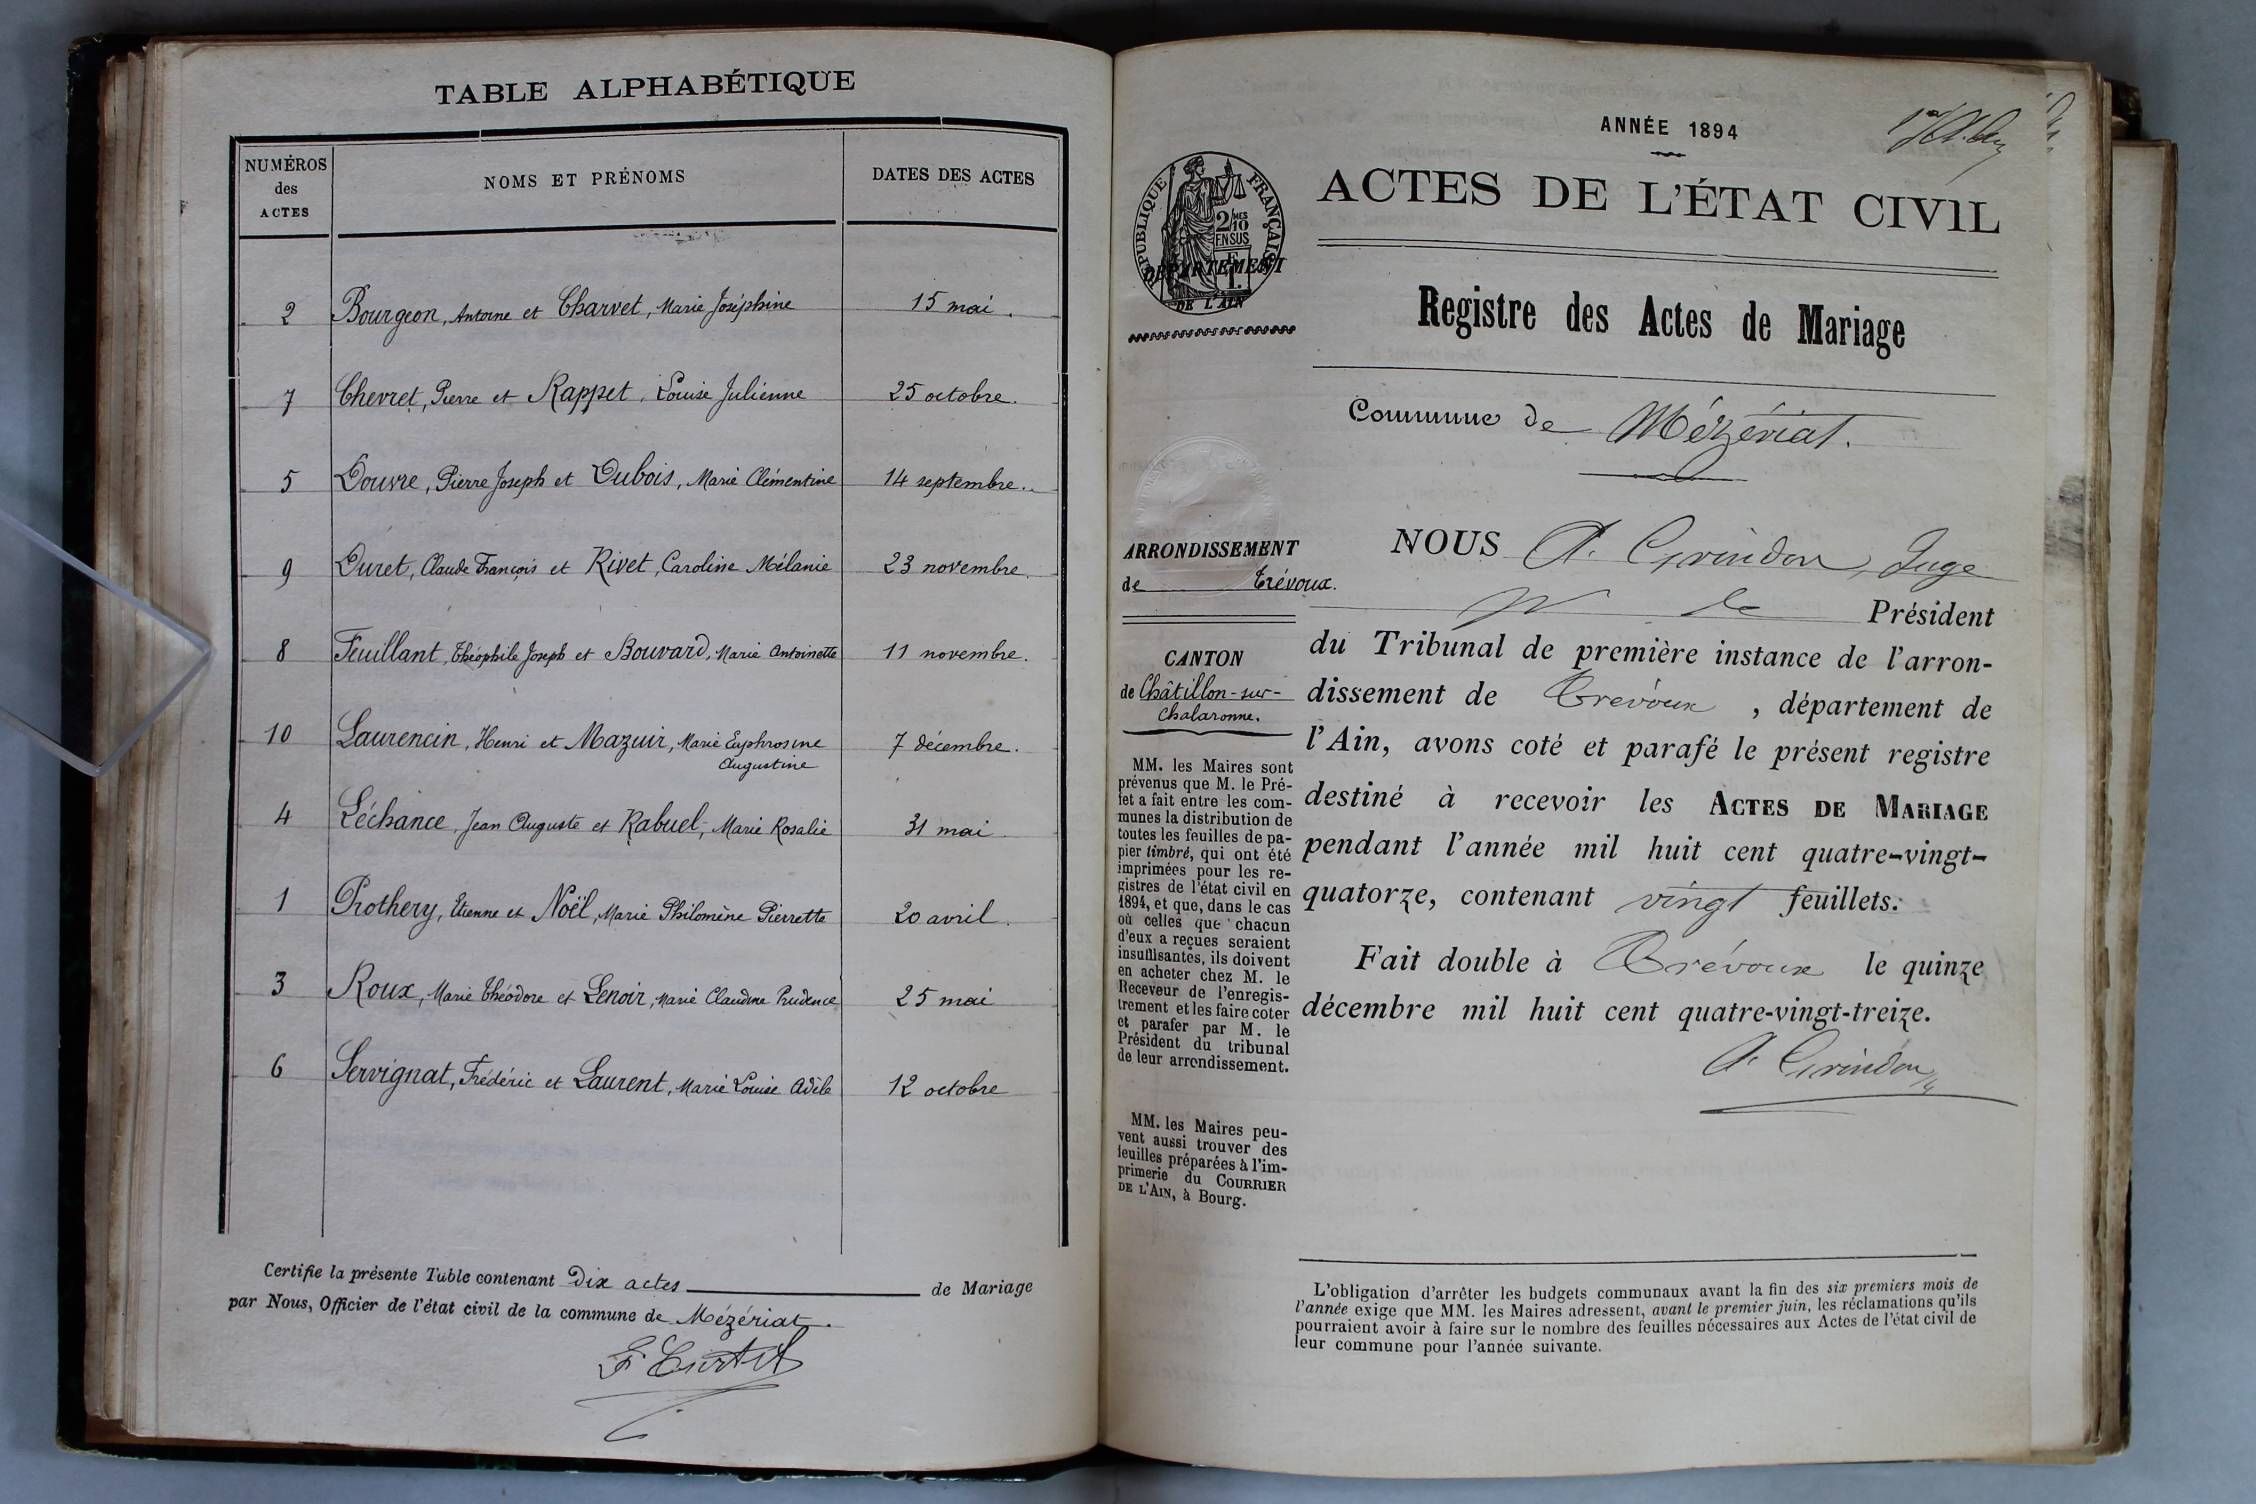 TABLE ALPHABÉTIQUE
NUMÉROS des ACTES
NOMS ET PRÉNOMS
DATES DES ACTES
2 Bourgeon, Antoine et Charvet, Marie Joséphine 15 mai.
7 Chevret, Pierre et Rappet, Louise Julienne 25 octobre.
5 Douvre, Pierre Joseph et Dubois, Marie Clémentine 14 septembre.
9 Duret, Claude François et Rivet, Caroline Mélanie 23 novembre.
8 Feuillant, Théophile Joseph et Bouvard, Marie Antoinette 11 novembre.
10 Laurencin, Henri et Mazuir, Marie Euphrosine 7 décembre.
Augustine
4 Léchance, Jean Auguste et Rabuel, Marie Rosalie 31 mai
1 Prothery, Etienne et Noël, Marie Philomène Pierrette 20 avril.
3 Roux, Marie Théodore et Lenoir, Marie Claudine Prudence 25 mai
6 Servignat, Frédéric et Laurent, Marie Louise Adèle 12 octobre
Certifie la présente Table contenant Dix actes de Mariage
par Nous, Officier de l'état civil de la commune de Mézériat.
ANNÉE 1894
RÉPUBLIQUE FRANÇAISE
2/10 MES
EN SUS
DÉPARTEMENT
DE L'AIN
ACTES DE L'ÉTAT CIVIL
Registre des Actes de Mariage
Commune de Mézériat.
ARRONDISSEMENT
de Trévoux.
CANTON
de Châtillon-sur-
Chalaronne.
MM. les Maires sont
prévenus que M. le Pré-
fet a fait entre les com-
munes la distribution de
toutes les feuilles de pa-
pier timbré, qui ont été
imprimées pour les re-
gistres de l'état civil en
1894, et que, dans le cas
où celles que chacun
d'eux a reçues seraient
insuffisantes, ils doivent
en acheter chez M. le
Receveur de l'enregis-
trement et les faire coter
et parafer par M. le
Président du tribunal
de leur arrondissement.
MM. les Maires peu-
vent aussi trouver des
feuilles préparées à l'im-
primerie du COURRIER
DE L'AIN, à Bourg.
NOUS A. Grindon, Juge
Pr le Président
du Tribunal de première instance de l'arron-
dissement de Trévoux, département de
l'Ain, avons coté et parafé le présent registre
destiné à recevoir les ACTES DE MARIAGE
pendant l'année mil huit cent quatre-vingt-
quatorze, contenant vingt feuillets.
Fait double à Trévoux le quinze
décembre mil huit cent quatre-vingt-treize.
A. Grindon
L'obligation d'arrêter les budgets communaux avant la fin des six premiers mois de
l'année exige que MM. les Maires adressent, avant le premier juin, les réclamations qu'ils
pourraient avoir à faire sur le nombre des feuilles nécessaires aux Actes de l'état civil de
leur commune pour l'année suivante.